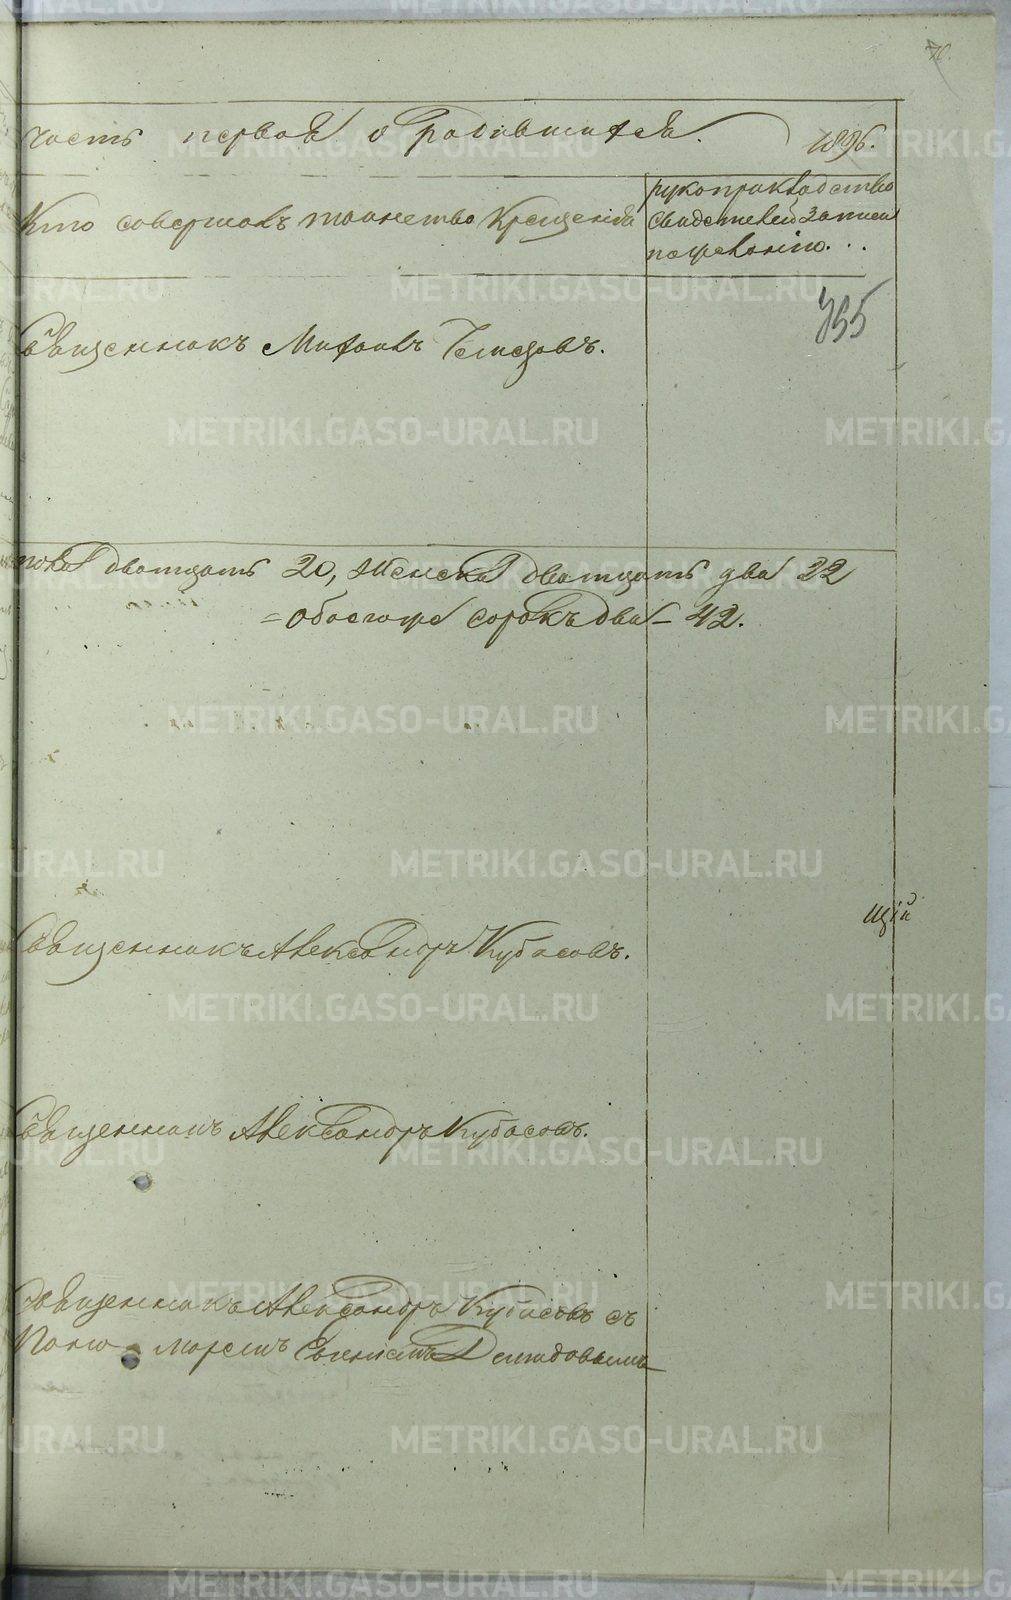 70.
часть первая о родившихся. 1896.
Кто совершалъ таинство Крещенія
рукоприкладство
свидетелей записи
по желанію...
755
Священникъ Михаилъ
пола двадцать 20, женска двадцать два 22
= обоего сорокъ два – 42.
щій
Священникъ Александръ Кубасовъ.
Священникъ Александръ Кубасовъ.
Священникъ Александръ Кубасовъ съ
Демидовымъ
METRIKI.GASO-URAL.RU